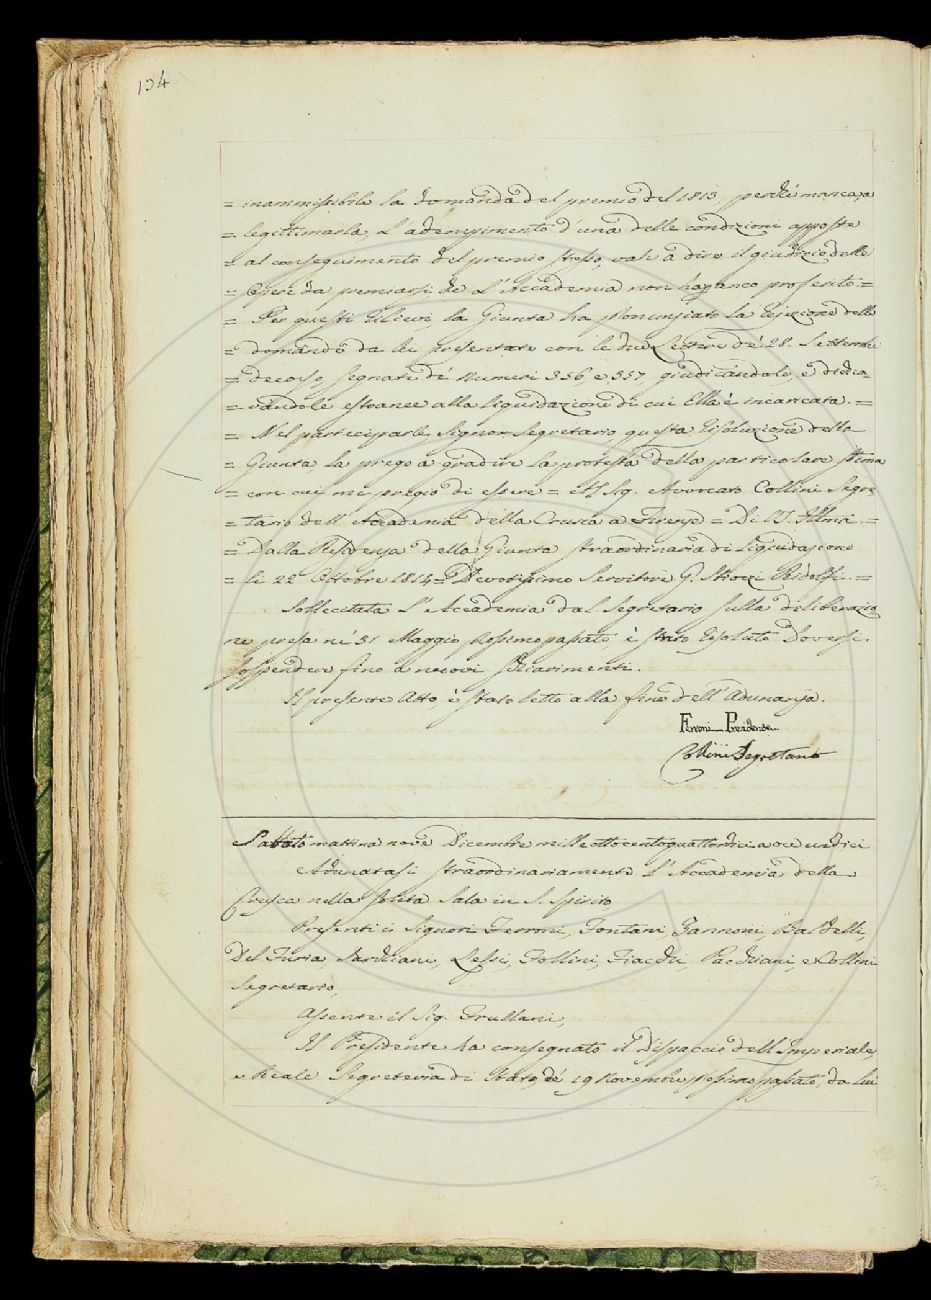 134
= inammissibile la domanda del premio del 1813, perchè mancava
= legittimarla, l'adempimento d'una delle condizioni apposte
= al conseguimento del premio stesso, vale a dire il giudizio delle
= Opere da premiarsi che l'Accademia non ha ancò proferito =
= Per questi rilievi, la Giunta ha pronunziato la rejezione delle
= domande da lei presentate con le due Lettere de' 28. Settembre
= decorso, segnate de' Numeri 356, e 357, giudicandole, e dichia=
= randole estranee alla liquidazione di cui Ella è incaricata. =
= Nel parteciparle, Signor Segretario, questa risoluzione della
= Giunta la prego a gradire la protesta della particolare stima
= con cui mi pregio di essere = Al Sig. Avvocato Collini Segre
= tario dell'Accademia della Crusca a Firenze = Di VS. Illma. =
= Dalla Residenza della Giunta straordinaria di Liquidazione
= li 22 Ottobre 1814 = Devotissimo Servitore G. Strozzi Ridolfi. =
Sollecitata l'Accademia dal Segretario sulla deliberazio
ne presa ne' 31 Maggio prossimo passato, è stato risoluto doversi
sospendere fino a nuovi schiarimenti.
Il presente Atto è stato letto alla fine dell'Adunanza.
Ferroni Presidente
Collini Segretario
Sabato mattina nove Dicembre mille ottocentoquattordici a ore undici
Adunatasi straordinariamente l'Accademia della
Crusca nella solita Sala in S. Spirito,
Presenti i Signori Ferroni, Fontani, Zannoni, Baldelli,
Del Furia, Sarchiani, Lessi, Follini, Fiacchi, Pacchiani, e Collini
Segretario,
Assente il Sig. Frullani,
Il Presidente ha consegnato il Dispaccio dell'Imperiale,
e Reale Segreteria di Stato de' 19 Novembre prossimo passato, da lui